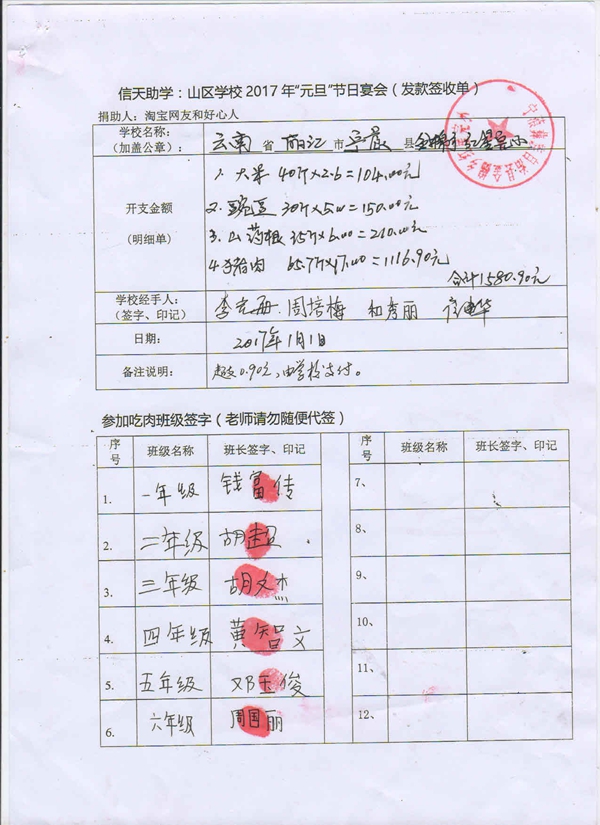 信天助学：山区学校2017年“元旦”节日宴会（发款签收单）
捐助人：淘宝网友和好心人
学校名称：
（加盖公章）：
云南省丽江市宁蒗县金棉乡
开支金额
（明细单）
1. 大米 40斤×2.6=104.00元
2. 豌豆 30斤×5.00=150.00元
3. 山药根 35斤×6.00=210.00元
4. 猪肉 65.7斤×17.00=1116.90元
合计1580.90元
学校经手人：
（签字、印记）
周培梅 和秀丽
日期：
2017年1月1日
备注说明：
超支0.90元，由学校支付。
参加吃肉班级签字（老师请勿随便代签）
序号 班级名称 班长签字、印记 序号 班级名称 班长签字、印记
1. 一年级 钱富传 7、
2. 二年级 胡超 8、
3. 三年级 胡文杰 9、
4. 四年级 黄智文 10、
5. 五年级 邓玉俊 11、
6. 六年级 周国丽 12、